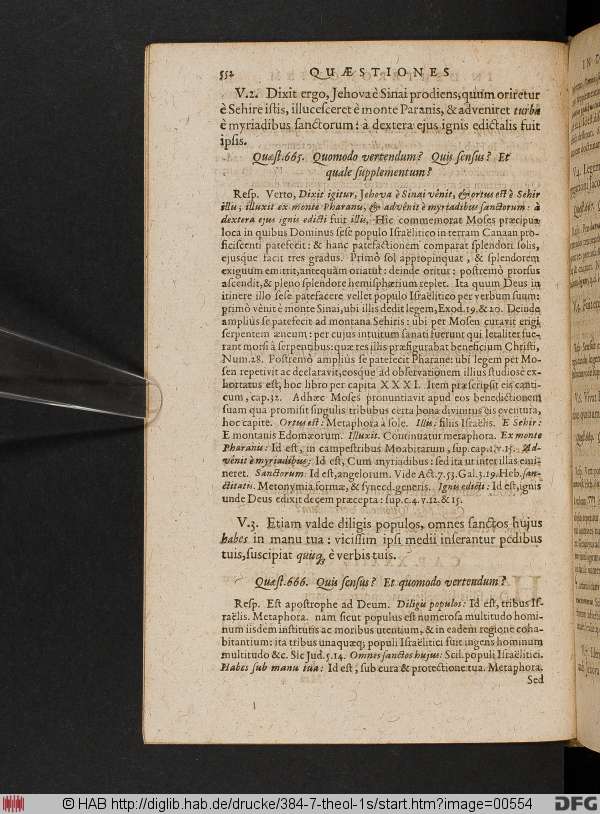 552 QUÆSTIONES
V.2. Dixit ergo, Jehova è Sinai prodiens, quùm oriretur
è Sehire istis, illucesceret è monte Paranis, & adveniret turbâ
è myriadibus sanctorum: à dextera ejus ignis edictalis fuit
ipsis.
Quæst.665. Quomodo vertendum? Quis sensus? Et
quale supplementum?
Resp. Verto, Dixit igitur, Jehova è Sinai vênit, & ortus est è Sehir
illis; illuxit ex monte Pharanu, & advênit è myriadibus sanctorum: à
dextera ejus ignis edicti fuit illis. Hîc commemorat Moses præcipua
loca in quibus Dominus sese populo Israëlitico in terram Canaan pro-
ficiscenti patefecit: & hanc patefactionem comparat splendori solis,
ejusque facit tres gradus. Primò sol appropinquat, & splendorem
exiguum emittit, antequàm oriatur: deinde oritur: postremò prorsus
ascendit, & pleno splendore hemisphærium replet. Ita quum Deus in
itinere illo sese patefacere vellet populo Israëlitico per verbum suum:
primò vênit è monte Sinai, ubi illis dedit legem, Exod.19.&20. Deinde
ampliùs se patefecit ad montana Sehiris: ubi per Mosen curavit erigi
serpentem æneum: per cujus intuitum sanati fuerunt qui letaliter fue-
rant morsi à serpentibus: quæ res illis præfigurabat beneficium Christi,
Num.28. Postremò ampliùs se patefecit Pharane: ubi legem per Mo-
sen repetivit ac declaravit, eosque ad observationem illius studiosè ex-
hortatus est, hoc libro per capita XXXI. Item præscripsit eis canti-
cum, cap.32. Adhæc Moses pronuntiavit apud eos benedictionem
suam qua promisit singulis tribubus certa bona divinitus eis eventura,
hoc capite. Ortus est: Metaphora à sole. Illis: filiis Israëlis. E Sehir:
E montanis Edomæorum. Illuxit. Continuatur metaphora. Ex monte
Pharanu: Id est, in campestribus Moabitarum, sup.cap.1.v.15. Ad-
vênit è myriadibus: Id est, Cum myriadibus: sed ita ut inter illas emi-
neret. Sanctorum: Id est, angelorum. Vide Act.7.53. Gal.3.19. Heb. san-
ctitatis. Metonymia formæ, & synecd. generis. Ignis edicti: Id est, ignis
unde Deus edixit decem præcepta: sup.c.4.v.12.&15.
V.3. Etiam valde diligis populos, omnes sanctos hujus
habes in manu tua: vicissim ipsi medii inserantur pedibus
tuis, suscipiat quisq; è verbis tuis.
Quæst.666. Quis sensus? Et quomodo vertendum?
Resp. Est apostrophe ad Deum. Diligis populos: Id est, tribus Is-
raëlis. Metaphora. nam sicut populus est numerosa multitudo homi-
num iisdem institutis ac moribus utentium, & in eadem regione coha-
bitantium: ita tribus unaquæq; populi Israëlitici fuit ingens hominum
multitudo &c. Sic Jud.5.14. Omnes sanctos hujus: Scil. populi Israëlitici.
Habes sub manu tua: Id est, sub cura & protectione tua. Metaphora.
Sed
© HAB http://diglib.hab.de/drucke/384-7-theol-1s/start.htm?image=00554
DFG